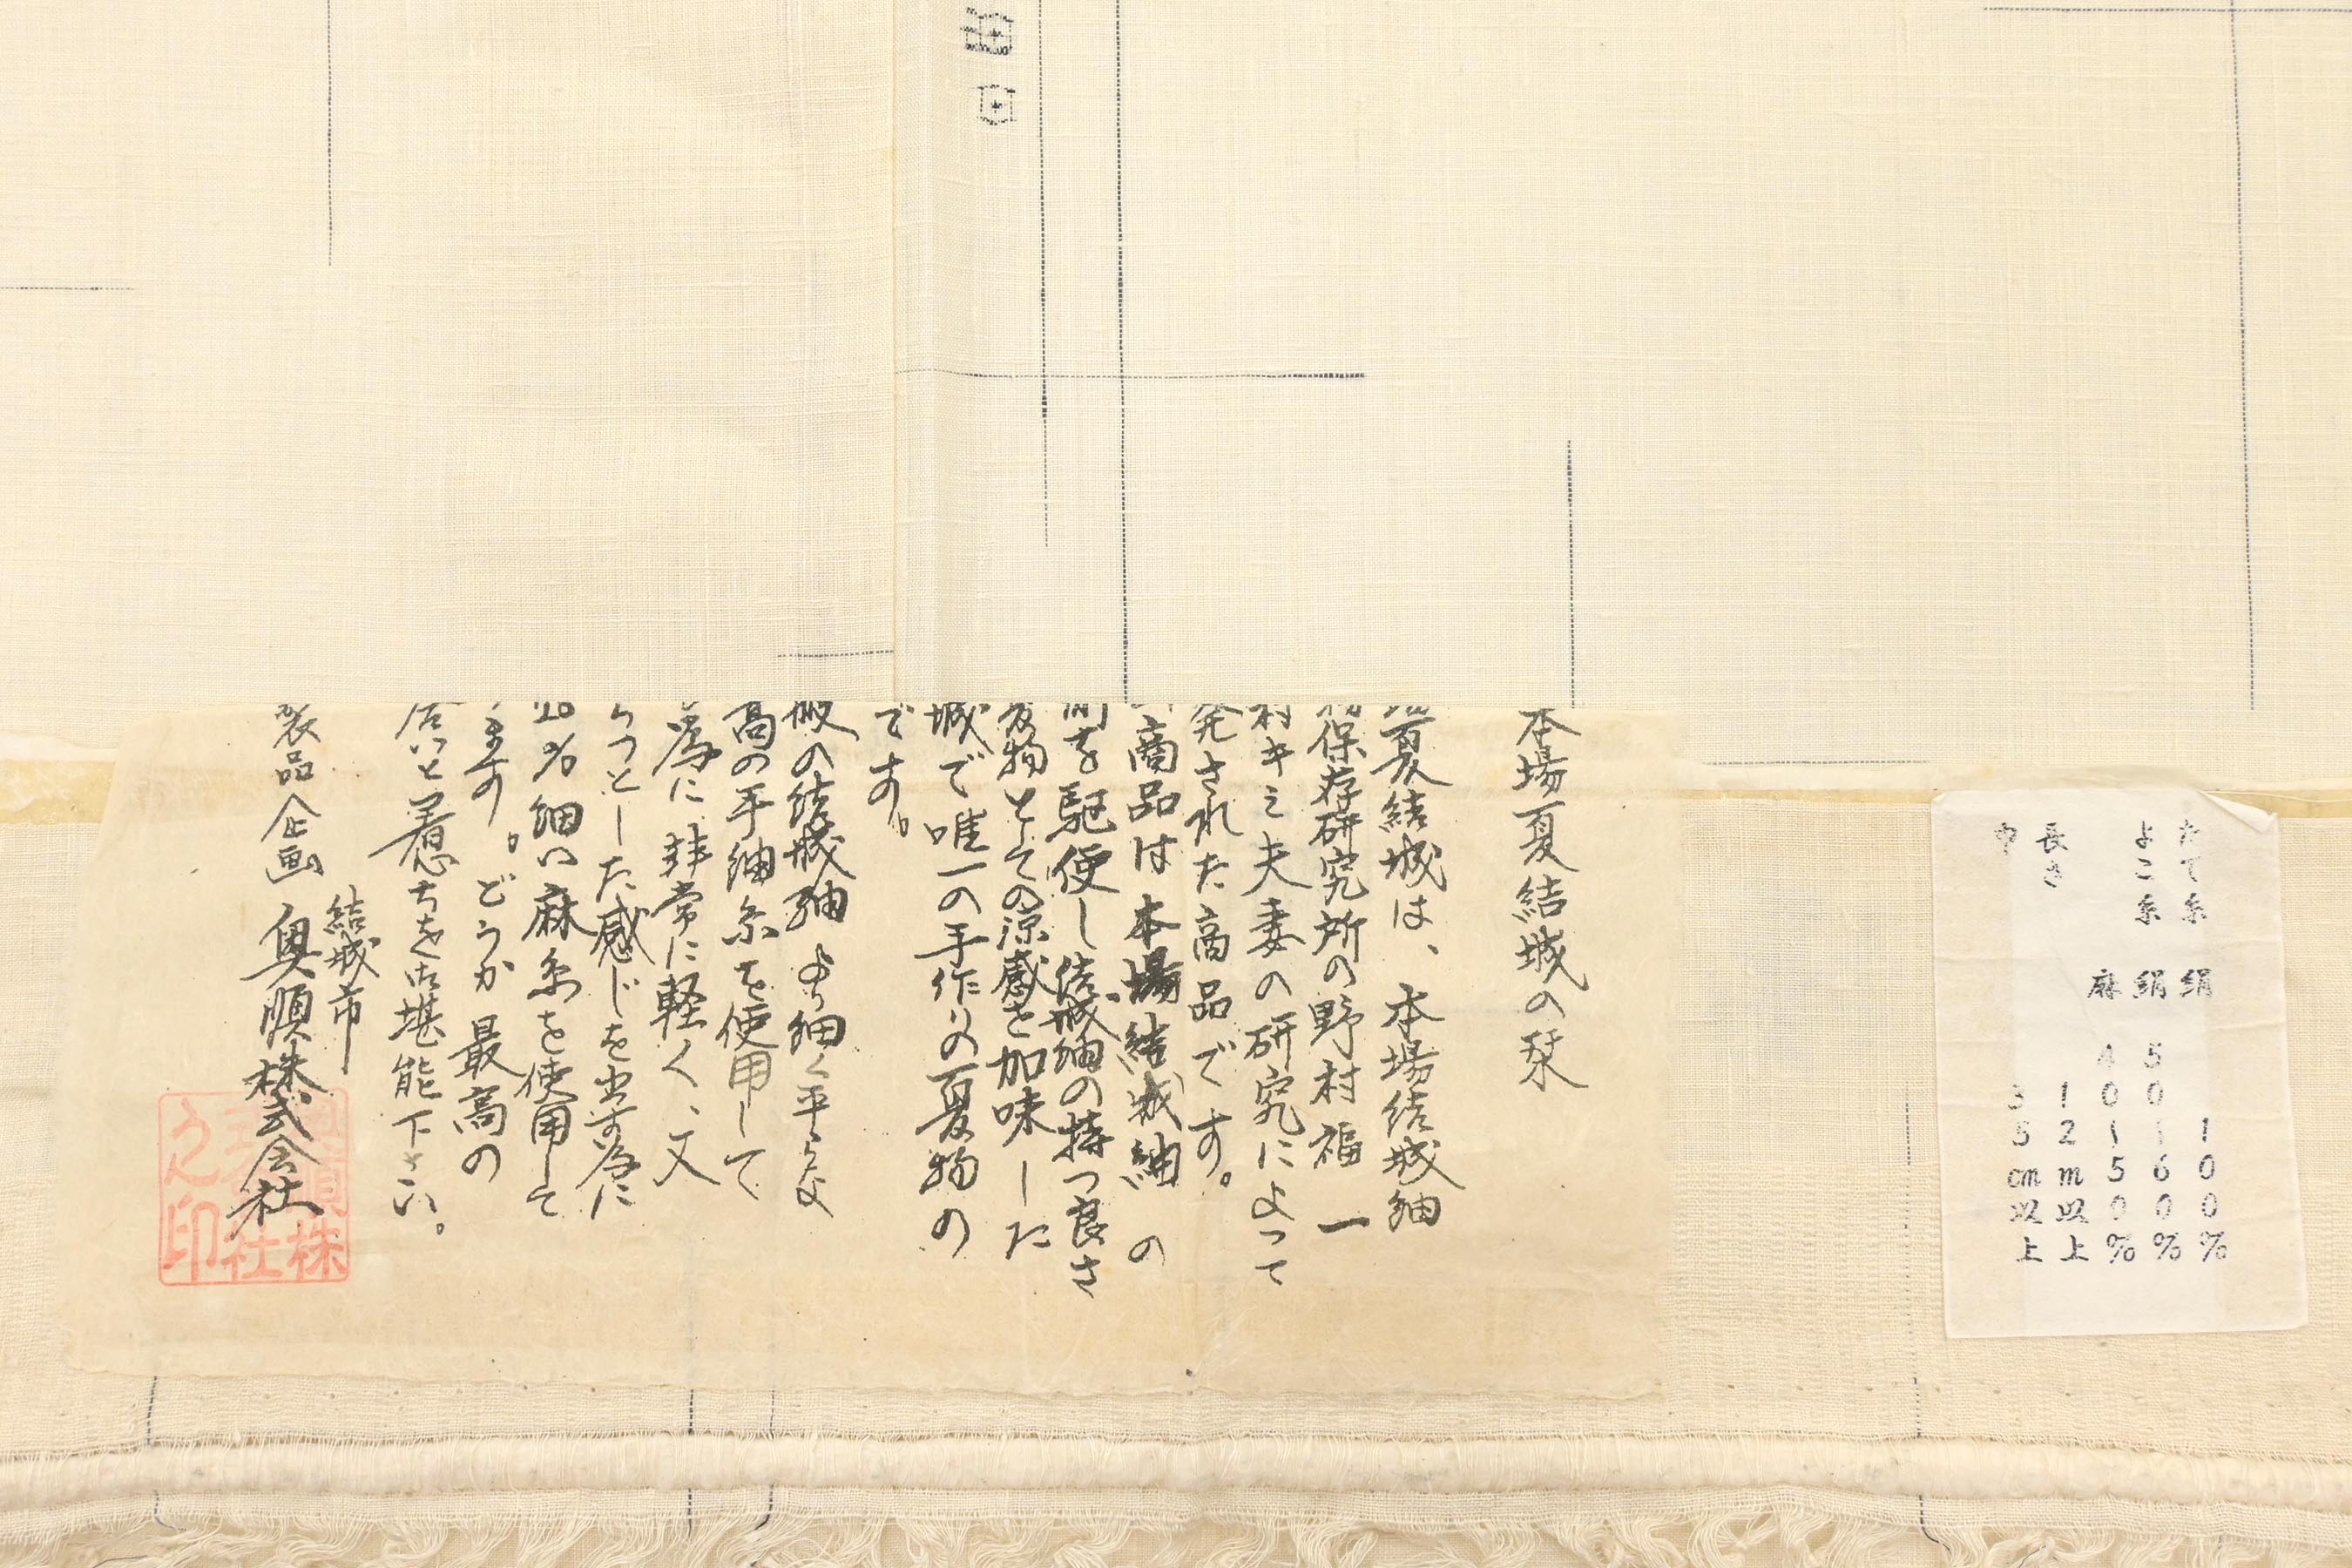 本場夏結城の栞
夏結城は、本場結城紬
保存研究所の野村福一
村キミ夫妻の研究によって
発された商品です。
商品は本場結城紬の
を駆使し結城紬の持つ良さ
夏物としての涼感を加味した
城で唯一の手作りの夏物の
です。
般の結城紬より細く平らな
高の手紬糸を使用して
為に非常に軽く、又
らっとした感じを出す為に
%細い麻糸を使用して
ます。どうか最高の
着心ちを御堪能下さい。
結城市
製品企画 奥順株式会社
之印
社
株
たて糸 絹 100%
よこ糸 絹 50〜60%
麻 40〜50%
長さ 12m以上
巾 35cm以上